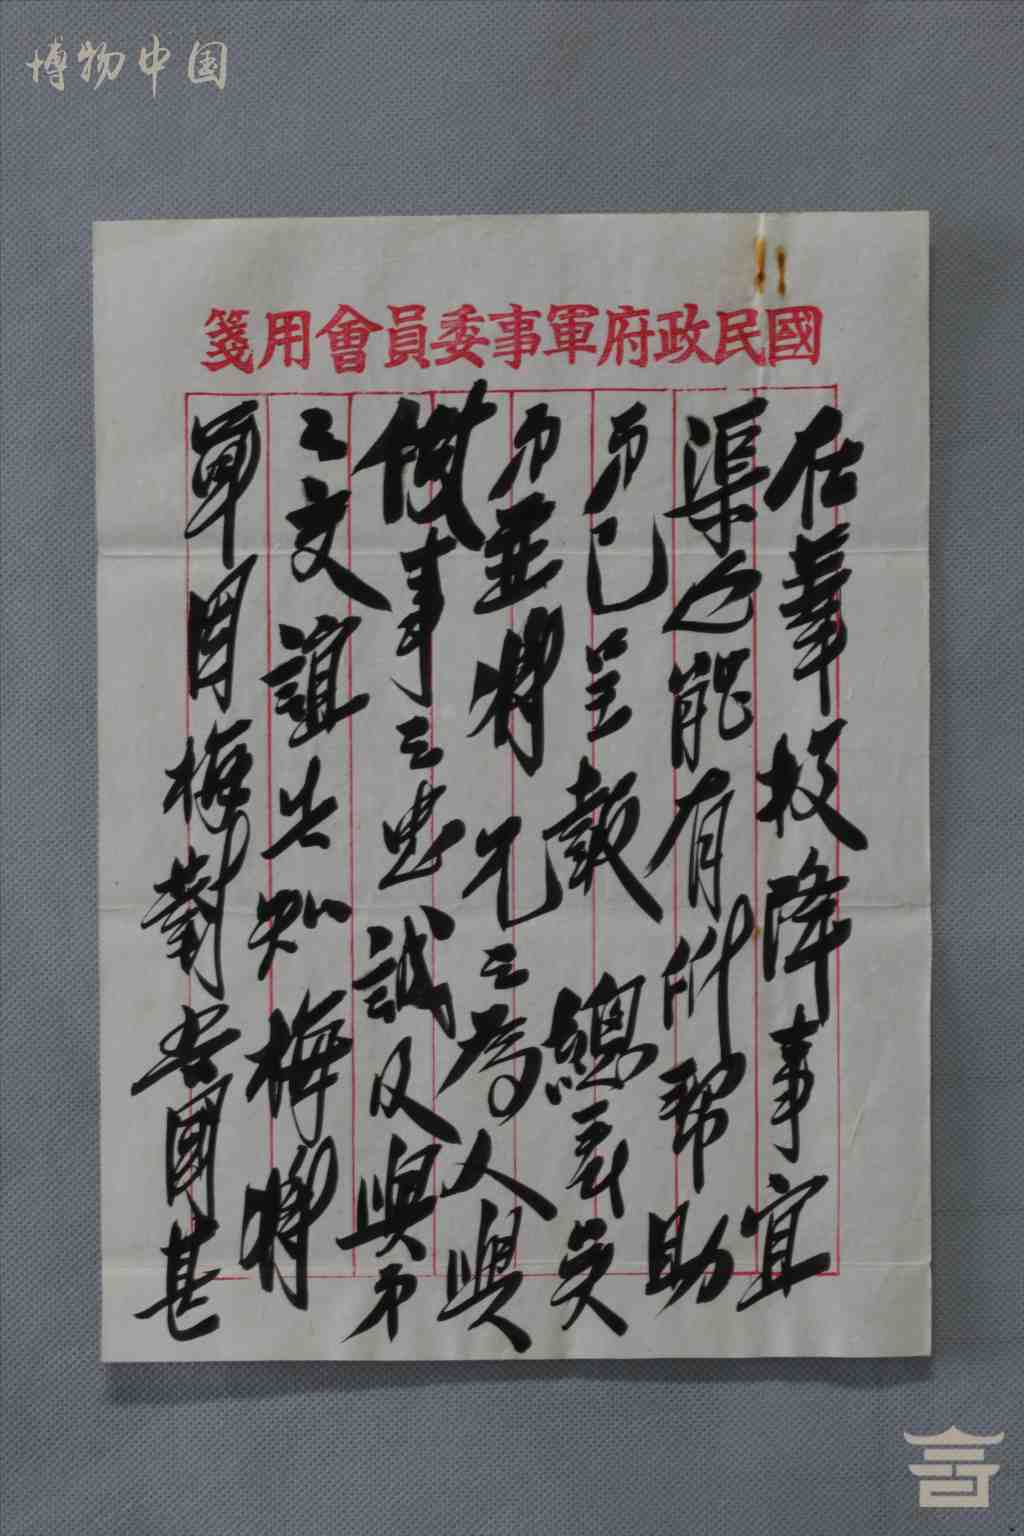 博物中国
國民政府軍事委員會用箋
在華投降事宜
渠必能有所幫助
弟已呈報 總矣
弟並將 兄之為人與
做事之忠誠及與弟
之交誼告知 梅將
軍因梅對吾國甚